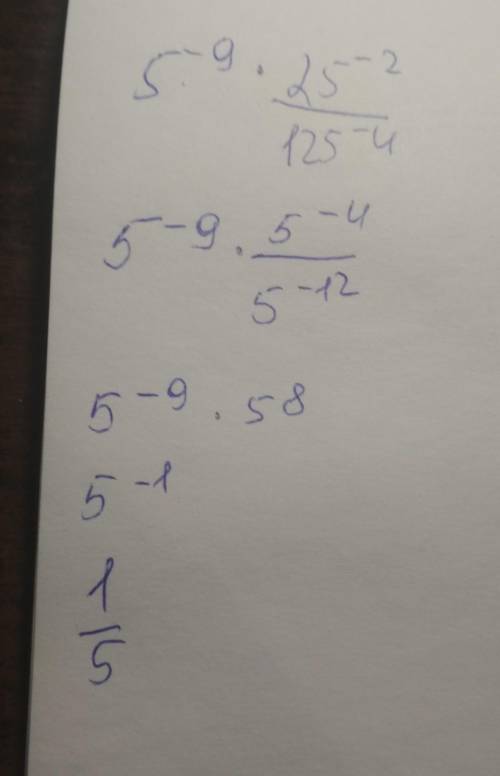 5⁻⁹ · 25⁻² / 125⁻⁴
5⁻⁹ · 5⁻⁴ / 5⁻¹²
5⁻⁹ · 5⁸
5⁻¹
1/5